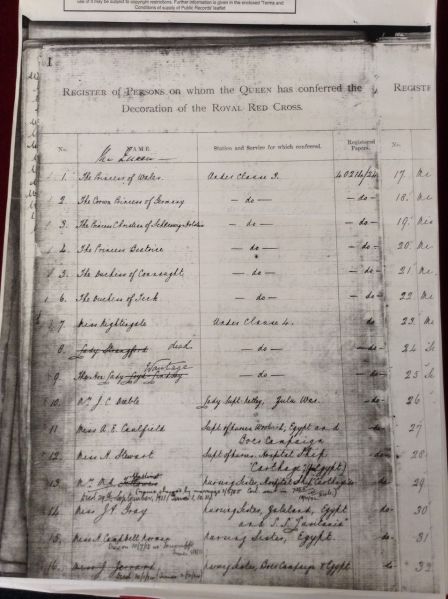 use of it may be subject to copyright restrictions. Further information is given in the enclosed 'Terms and
Conditions of supply of Public Records' leaflet
1
REGISTER OF PERSONS on whom the QUEEN has conferred the
Decoration of the ROYAL RED CROSS.
REGISTE
No. NAME. Station and Service for which conferred. Registered Papers. No.
The Queen
1. The Princess of Wales Under Clause 3. 40214/24 17.
2. The Crown Princess of Germany — do — - do - 18.
3. The Princess Christian of Schleswig Holstein — do — - do - 19.
4. The Princess Beatrice — do — - do - 20.
5. The Duchess of Connaught — do — - do - 21
6. The Duchess of Teck — do — - do - 22
7. Miss Nightingale Under Clause 4. do 23.
8. Lady Strangford dead. — do — - do - 24
9. The Hon. Lady Loyd Lindsay Wantage — do — - do - 25
10. Mrs J. C. Deeble Lady Supt. Netley, Zulu War -do- 26
11 Miss A. E. Caulfeild Supt. of Nurses Woolwich, Egypt and -do- 27
Boer Campaign
12 Miss H. Stewart Supt. of Nurses, Hospital Ship -do- 28
"Carthage" (Egypt)
13. Nursing Sister, Hospital Ship Carthage -do- 29
14 Miss J. Gray Nursing Sister, Zululand, Egypt -do- 30
and S.S.
15. Miss A. Campbell Nursing Sister, Egypt. -do- 31
16. Miss J. Nursing Sister, Boer Campaign & Egypt -do- 32